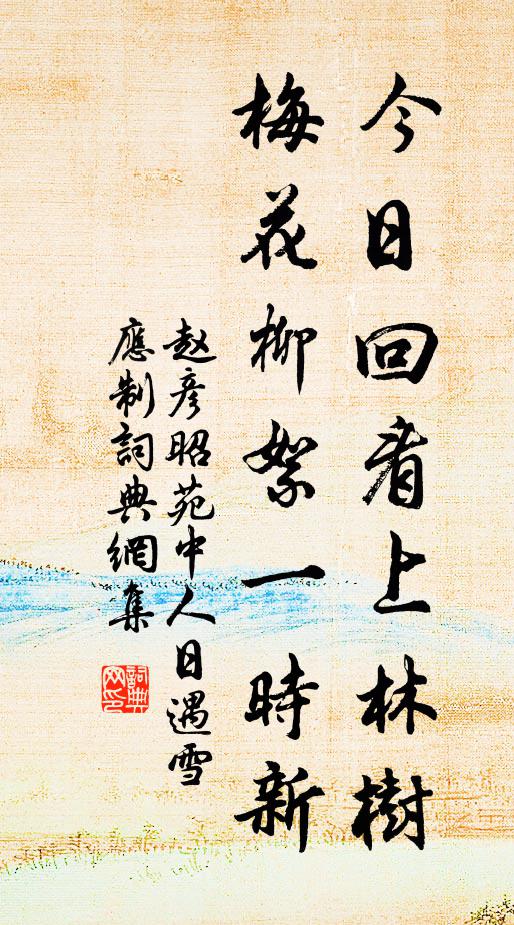 今日回看上林樹
梅花柳絮一時新
赵彦昭苑中人日遇雪
應制詞典網集
詞典网印